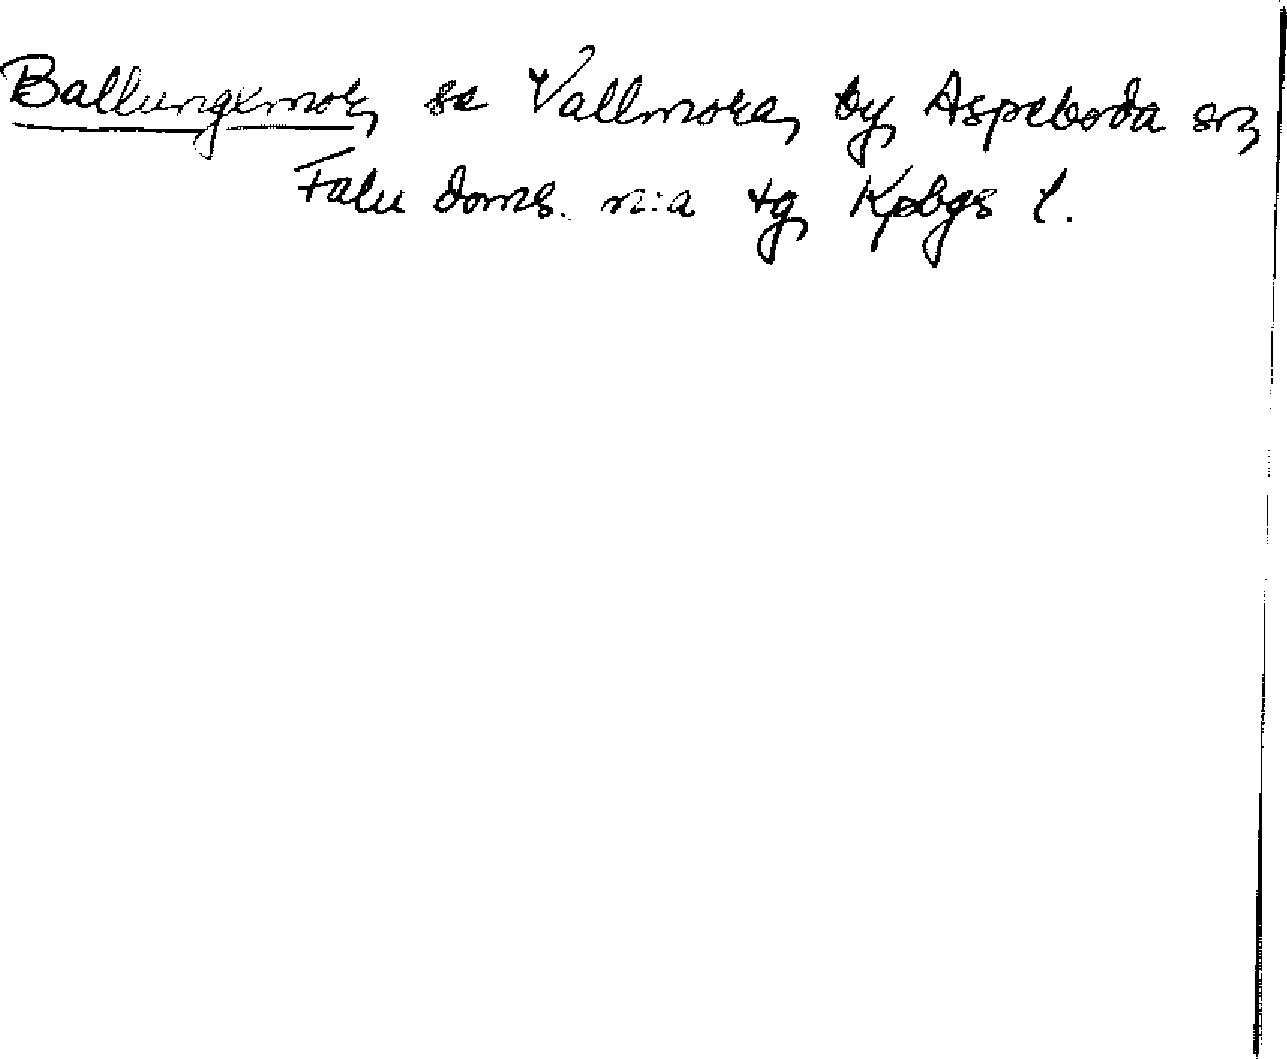 Ballungxmor, se Vallmora, by, Aspeboda sn,
Falu doms. n:a tg, Kpbgs l.